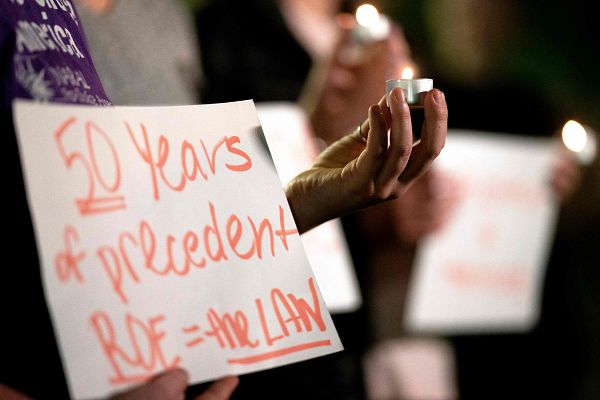 America
NARAL
50 Years
of precedent
ROE = the LAW